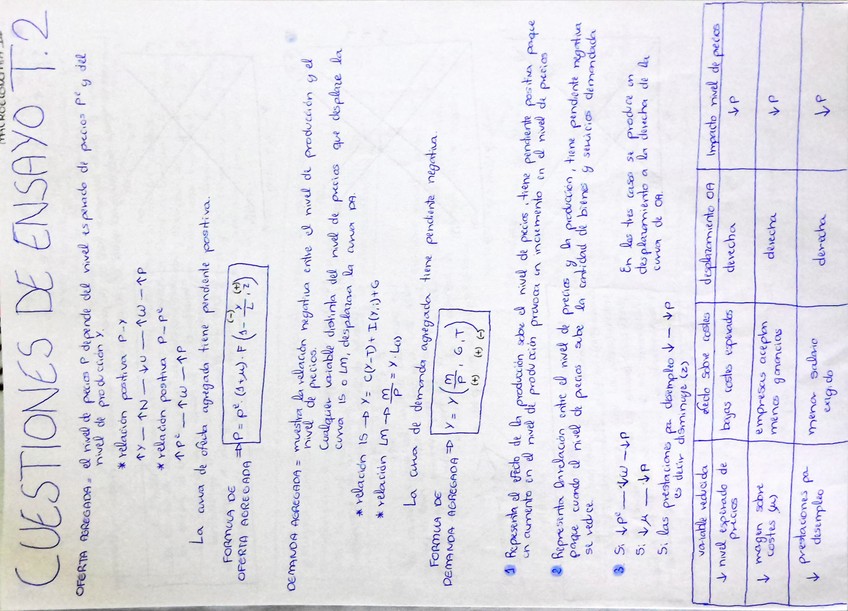 CUESTIONES DE ENSAYO T.2
OFERTA AGREGADA = el nivel de precios P depende del nivel esperado de precios Pᵉ y del
nivel de producción Y.
* relación positiva P-Y
↑Y — ↑N — ↓u — ↑W — ↑P
* relación positiva P-Pᵉ
↑Pᵉ — ↑W — ↑P
La curva de oferta agregada tiene pendiente positiva.
FORMULA DE
OFERTA AGREGADA ⇒ P = Pᵉ·(1+μ)·F(1 - Y/L, z)
(-) (+)
DEMANDA AGREGADA = muestra la relación negativa entre el nivel de producción y el
nivel de precios.
Cualquier variable distinta del nivel de precios que desplaze la
curva IS o LM, desplazan la curva DA.
* relación IS → Y = C(Y-T) + I(Y,i) + G
* relación LM → M/P = Y·L(i)
La curva de demanda agregada tiene pendiente negativa.
FORMULA DE
DEMANDA AGREGADA ⇒ Y = Y(M/P, G, T)
(+) (+) (-)
1 Representa el efecto de la producción sobre el nivel de precios, tiene pendiente positiva porque
un aumento en el nivel de producción provoca un incremento en el nivel de precios
2 Representa la relación entre el nivel de precios y la producción, tiene pendiente negativa
porque cuando el nivel de precios sube la cantidad de bienes y servicios demandada
se reduce.
3 Si ↓Pᵉ — ↓W — ↓P
Si ↓μ — ↓P
Si las prestaciones por desempleo ↓ — ↓P
es decir disminuye (z)
En los tres casos se produce un
desplazamiento a la derecha de la
curva de OA.
variable reducida | efecto sobre costes | desplazamiento OA | Impacto nivel de precios
↓ nivel esperado de precios | bajas costes esperados | derecha | ↓P
↓ margen sobre costes (μ) | empresas aceptan menos ganancias | derecha | ↓P
↓ prestaciones por desempleo | menor salario exigido | derecha | ↓P